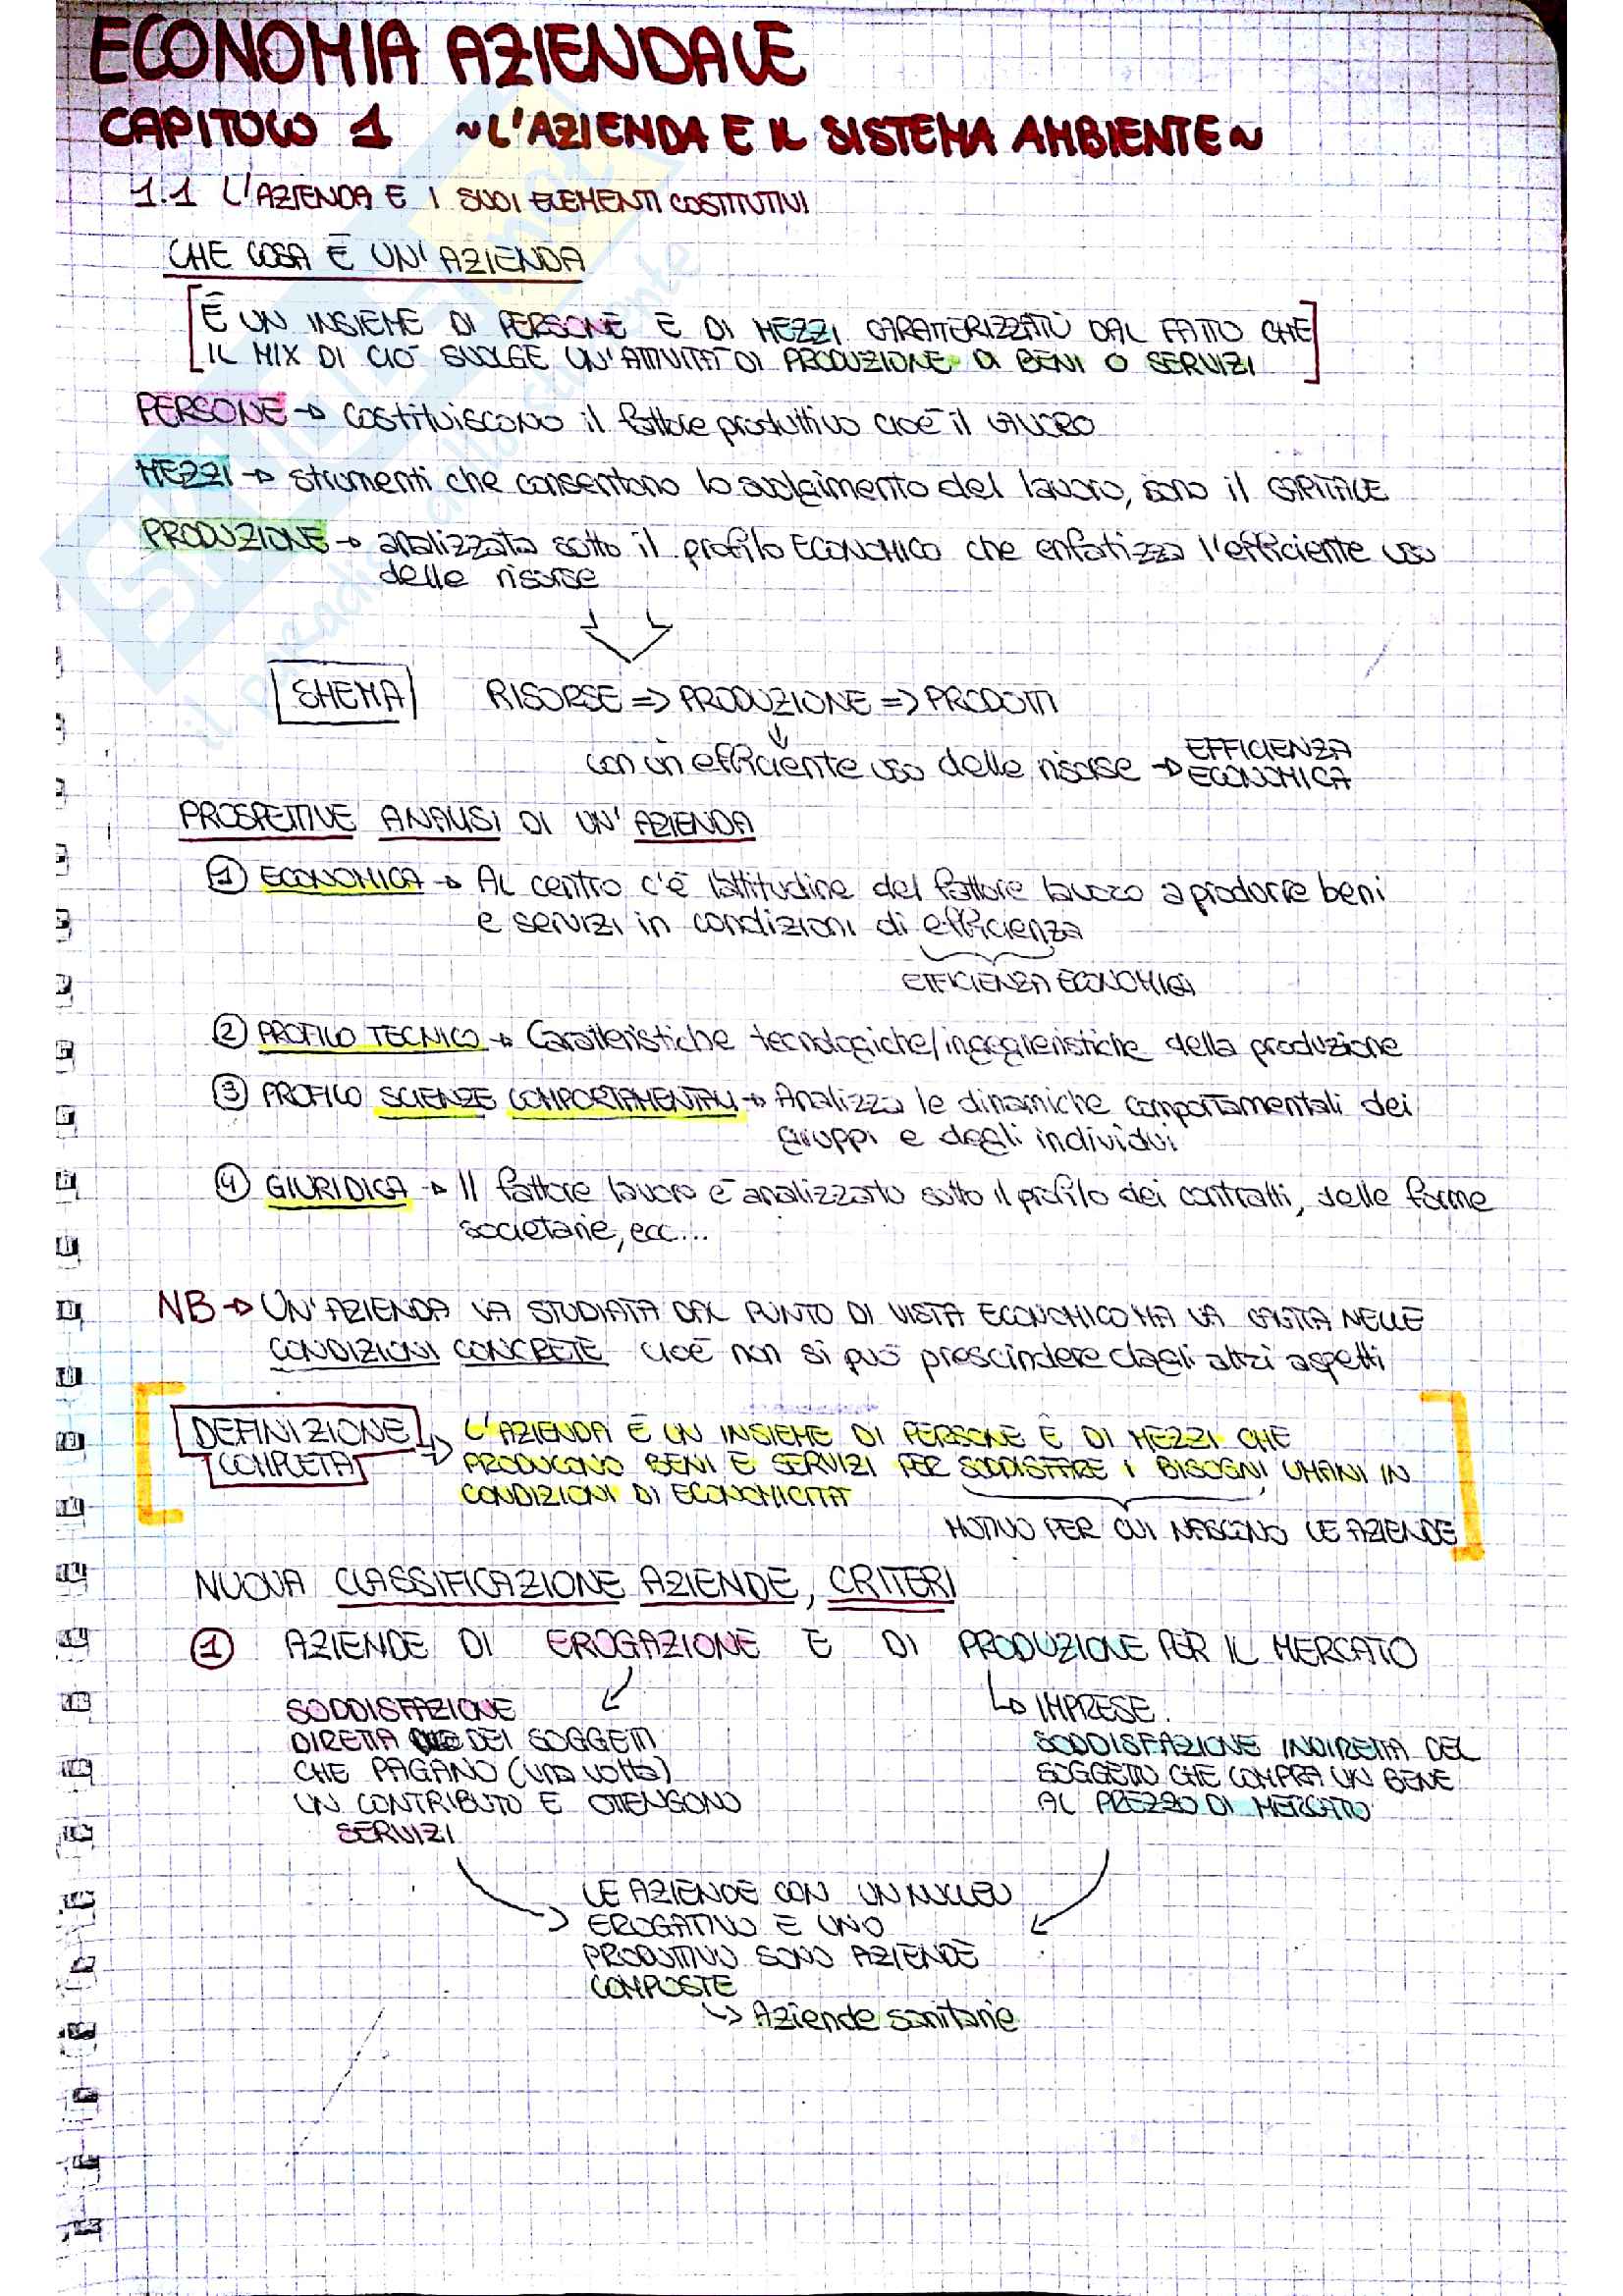 ECONOMIA AZIENDALE
CAPITOLO 1 ~L'AZIENDA E IL SISTEMA AMBIENTE~
1.1 L'AZIENDA E I SUOI ELEMENTI COSTITUTIVI
CHE COSA È UN'AZIENDA
È UN INSIEME DI PERSONE E DI MEZZI CARATTERIZZATO DAL FATTO CHE
IL MIX DI CIÒ SVOLGE UN'ATTIVITÀ DI PRODUZIONE DI BENI O SERVIZI
PERSONE → costituiscono il fattore produttivo cioè il LAVORO
MEZZI → strumenti che consentono lo svolgimento del lavoro, sono il CAPITALE
PRODUZIONE → analizzata sotto il profilo ECONOMICO che enfatizza l'efficiente uso
delle risorse
SHEMA RISORSE => PRODUZIONE => PRODOTTI
con un efficiente uso delle risorse → EFFICIENZA
ECONOMICA
PROSPETTIVE ANALISI DI UN'AZIENDA
1 ECONOMICA → Al centro c'è l'attitudine del fattore lavoro a produrre beni
e servizi in condizioni di efficienza
EFFICIENZA ECONOMICA
2 PROFILO TECNICO → Caratteristiche tecnologiche/ingegneristiche della produzione
3 PROFILO SCIENZE COMPORTAMENTALI → Analizza le dinamiche comportamentali dei
gruppi e degli individui
4 GIURIDICA → Il fattore lavoro è analizzato sotto il profilo dei contratti, delle forme
societarie, ecc...
NB → UN'AZIENDA VA STUDIATA DAL PUNTO DI VISTA ECONOMICO MA VA CALATA NELLE
CONDIZIONI CONCRETE cioè non si può prescindere dagli altri aspetti
DEFINIZIONE COMPLETA → L'AZIENDA È UN INSIEME DI PERSONE E DI MEZZI CHE
PRODUCONO BENI E SERVIZI PER SODDISFARE I BISOGNI UMANI IN
CONDIZIONI DI ECONOMICITÀ
MOTIVO PER CUI NASCONO LE AZIENDE
NUOVA CLASSIFICAZIONE AZIENDE, CRITERI
1 AZIENDE DI EROGAZIONE E DI PRODUZIONE PER IL MERCATO
SODDISFAZIONE
DIRETTA DEI SOGGETTI
CHE PAGANO (una volta)
UN CONTRIBUTO E OTTENGONO
SERVIZI
IMPRESE.
SODDISFAZIONE INDIRETTA DEL
SOGGETTO CHE COMPRA UN BENE
AL PREZZO DI MERCATO
LE AZIENDE CON UN NUCLEO
EROGATIVO E UNO
PRODUTTIVO SONO AZIENDE
COMPOSTE
→ Aziende sanitarie